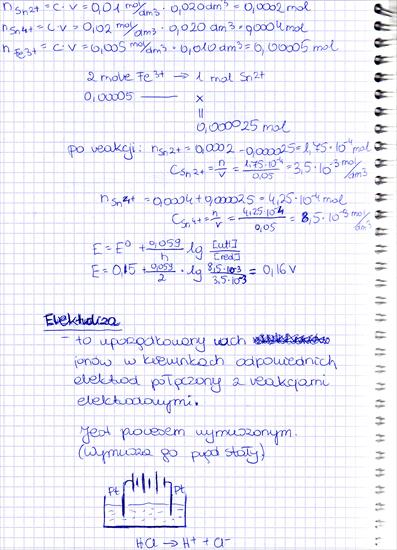 n Sn2+ = c·V = 0,01 mol/dm3 · 0,020 dm3 = 0,0002 mol
n Sn4+ = c·V = 0,02 mol/dm3 · 0,020 dm3 = 0,0004 mol
n Fe3+ = c·V = 0,005 mol/dm3 · 0,010 dm3 = 0,00005 mol
2 mole Fe3+ → 1 mol Sn2+
0,00005 — x
=
0,000025 mol
po reakcji: n Sn2+ = 0,0002 - 0,000025 = 1,75·10-4 mol
C Sn2+ = n/V = 1,75·10-4/0,05 = 3,5·10-3 mol/dm3
n Sn4+ = 0,0004 + 0,000025 = 4,25·10-4 mol
C Sn4+ = n/V = 4,25·10-4/0,05 = 8,5·10-3 mol/dm3
E = E0 + 0,059/n lg [utl]/[red]
E = 0,15 + 0,059/2 · lg 8,5·10-3/3,5·10-3 = 0,16 V
Elektroliza
- to uporządkowany ruch
jonów w kierunkach odpowiednich
elektrod połączony z reakcjami
elektrodowymi.
Jest procesem wymuszonym.
(Wymusza go prąd stały)
Pt Pt
HCl → H+ + Cl-